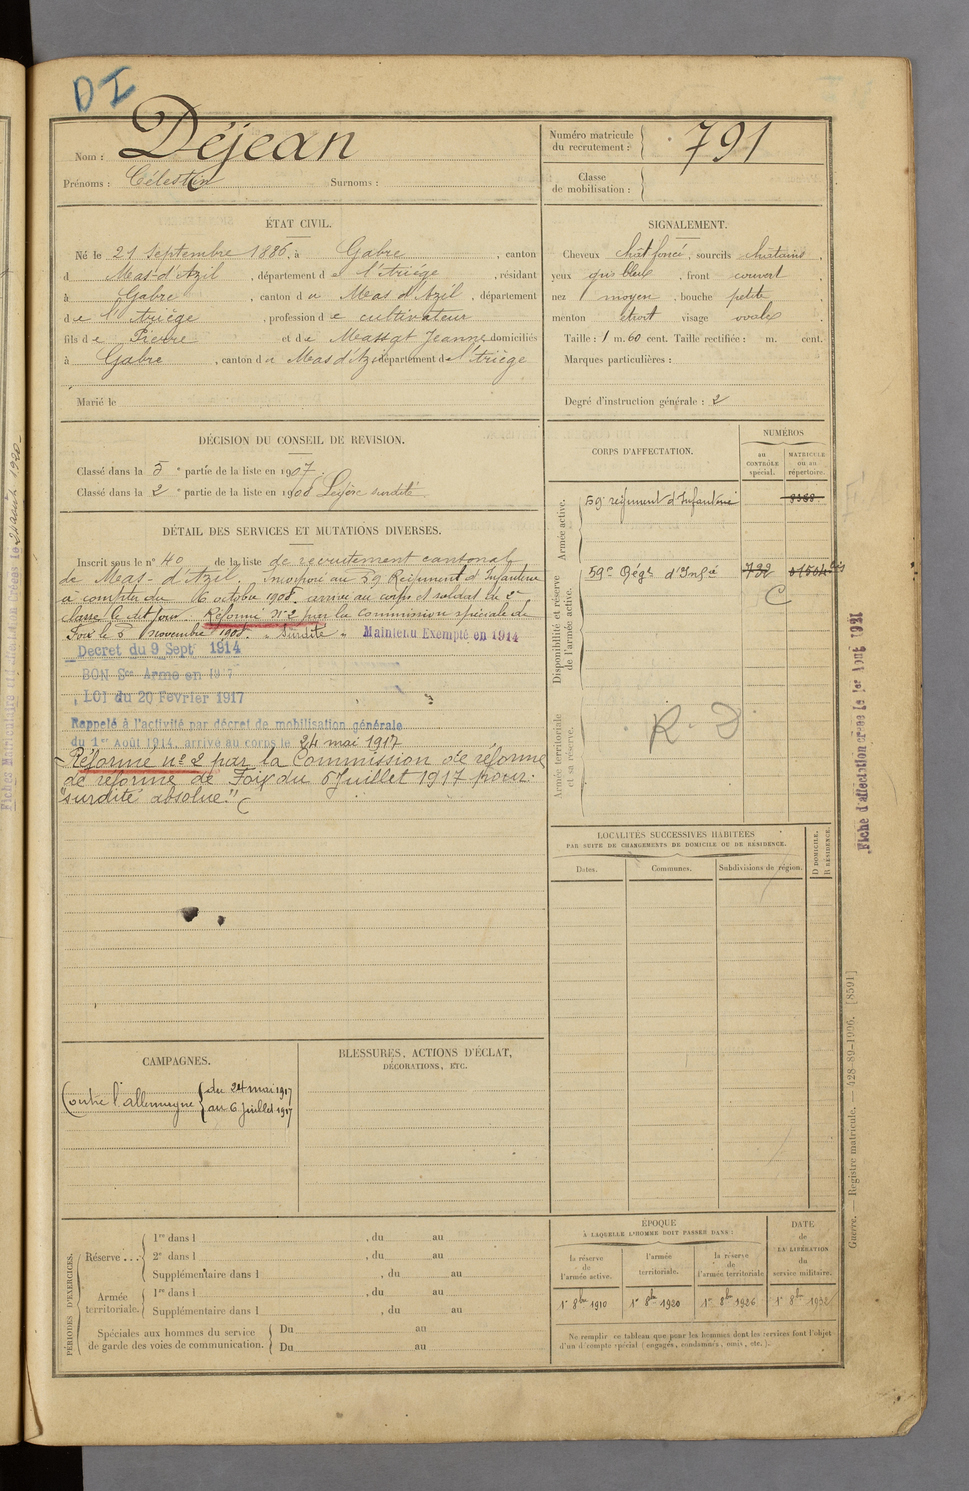 DI
Nom : Déjean
Prénoms : Célestin Surnoms :
Numéro matricule du recrutement : 791
Classe de mobilisation :
ÉTAT CIVIL.
Né le 21 Septembre 1886, à Gabre, canton
d Mas-d'Azil, département de l'Ariége, résidant
à Gabre, canton du Mas d'Azil, département
de l'Ariége, profession de cultivateur
fils de Pierre et de Massat Jeanne domiciliés
à Gabre, canton du Mas d'Azil département de l'Ariége
Marié le
SIGNALEMENT.
Cheveux chât foncé, sourcils châtains,
yeux gris bleu, front couvert
nez moyen, bouche petite,
menton étroit visage ovale.
Taille : 1 m. 60 cent. Taille rectifiée : m. cent.
Marques particulières :
Degré d'instruction générale : 2
DÉCISION DU CONSEIL DE REVISION.
Classé dans la 5e partie de la liste en 1907.
Classé dans la 2e partie de la liste en 1908 surdité
DÉTAIL DES SERVICES ET MUTATIONS DIVERSES.
Inscrit sous le n° 40 de la liste de recrutement cantonal
de Mas-d'Azil. Incorporé au 59 Régiment d'Infanterie
à compter du 6 octobre 1908. arrivé au corps et soldat de 2e
classe le dit jour. Réformé N° 2 par la Commission spéciale de
Foix le 5 novembre 1908. "Surdité" Maintenu Exempté en 1914
Decret du 9 Sept 1914
BON Sce Armé en 1917
LOI du 20 Février 1917
Rappelé à l'activité par décret de mobilisation générale
du 1er Août 1914, arrivé au corps le 24 mai 1917
Réformé n° 2 par la Commission de réforme
de réforme de Foix du 6 Juillet 1917 pour:
"surdité absolue."
CORPS D'AFFECTATION.
NUMÉROS
au CONTRÔLE spécial.
MATRICULE ou au répertoire.
Armée active.
59e régiment d'Infanterie
Disponibilité et réserve de l'armée active.
59e Régt d'Infie 732
C
Armée territoriale et sa réserve.
R.D
LOCALITÉS SUCCESSIVES HABITÉES
PAR SUITE DE CHANGEMENTS DE DOMICILE OU DE RÉSIDENCE.
Dates. Communes. Subdivisions de région.
D DOMICILE. R RÉSIDENCE.
CAMPAGNES.
Contre l'allemagne du 24 mai 1917
au 6 Juillet 1917
BLESSURES, ACTIONS D'ÉCLAT,
DÉCORATIONS, ETC.
PÉRIODES D'EXERCICES.
Réserve...
1re dans l , du au
2e dans l , du au
Supplémentaire dans l , du au
Armée territoriale.
1re dans l , du au
Supplémentaire dans l , du au
Spéciales aux hommes du service de garde des voies de communication.
Du au
Du au
ÉPOQUE
À LAQUELLE L'HOMME DOIT PASSER DANS :
la réserve de l'armée active.
l'armée territoriale.
la réserve de l'armée territoriale
DATE de LA LIBÉRATION du service militaire.
1er 8bre 1910 1er 8bre 1920 1er 8bre 1926 1er 8bre 1932
Ne remplir ce tableau que pour les hommes dont les services font l'objet
d'un décompte spécial (engagés, condamnés, omis, etc.).
Fiche d'affectation créée le 1er Août 1921
Guerre. — Registre matricule. — 428-89-1906. [8591]